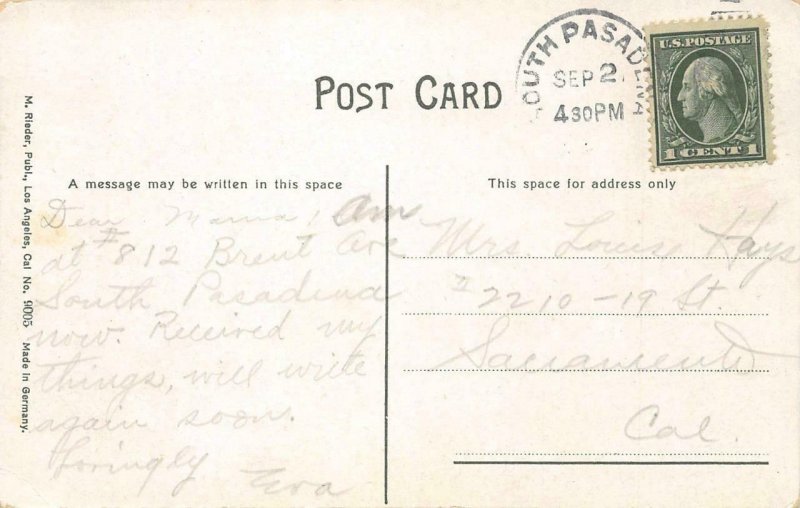 SOUTH PASADENA
SEP 2
430PM
U.S. POSTAGE
1 CENT 1
POST CARD
A message may be written in this space
This space for address only
M. Rieder, Publ., Los Angeles, Cal No. 9005 Made in Germany.
Dear Mama, am
at #812 Brent Ave
South Pasadena
now. Received my
things, will write
again soon.
Lovingly
Eva
Mrs. Louise Hays
#2210-19 St.
Sacramento
Cal.